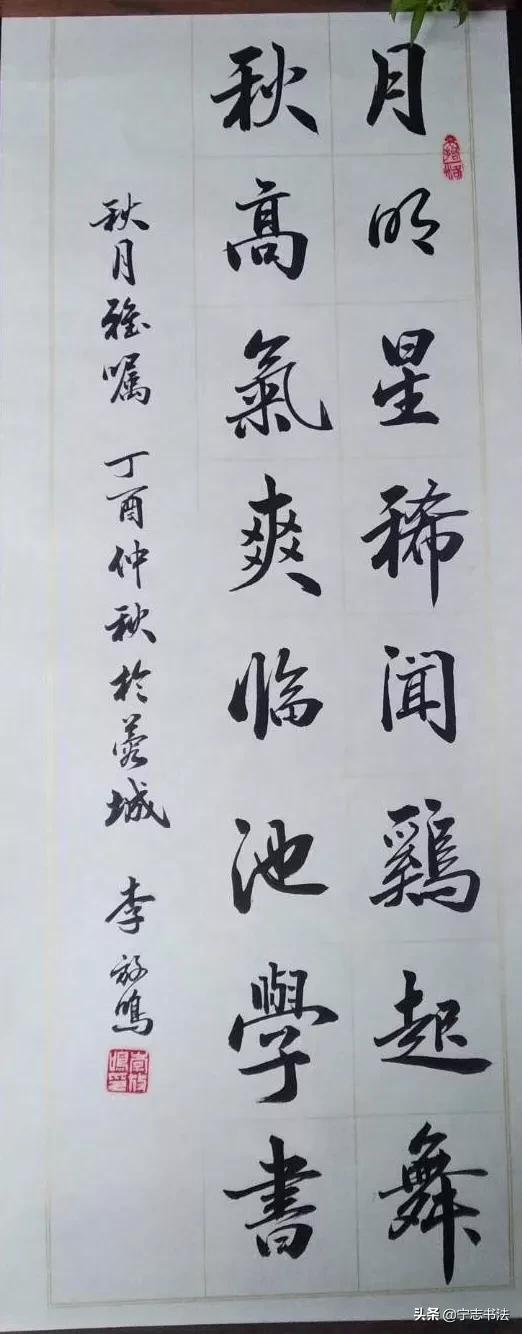 月明星稀闻鷄起舞
秋高氣爽临池學書
秋月雅嘱 丁酉仲秋於蓉城 李放鳴
头条 @宁志书法